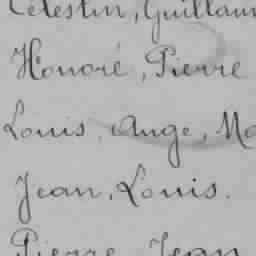 Célestin, Guillaum
Honoré, Pierre
Louis, Ange, Ma
Jean, Louis.
Pierre, Jean